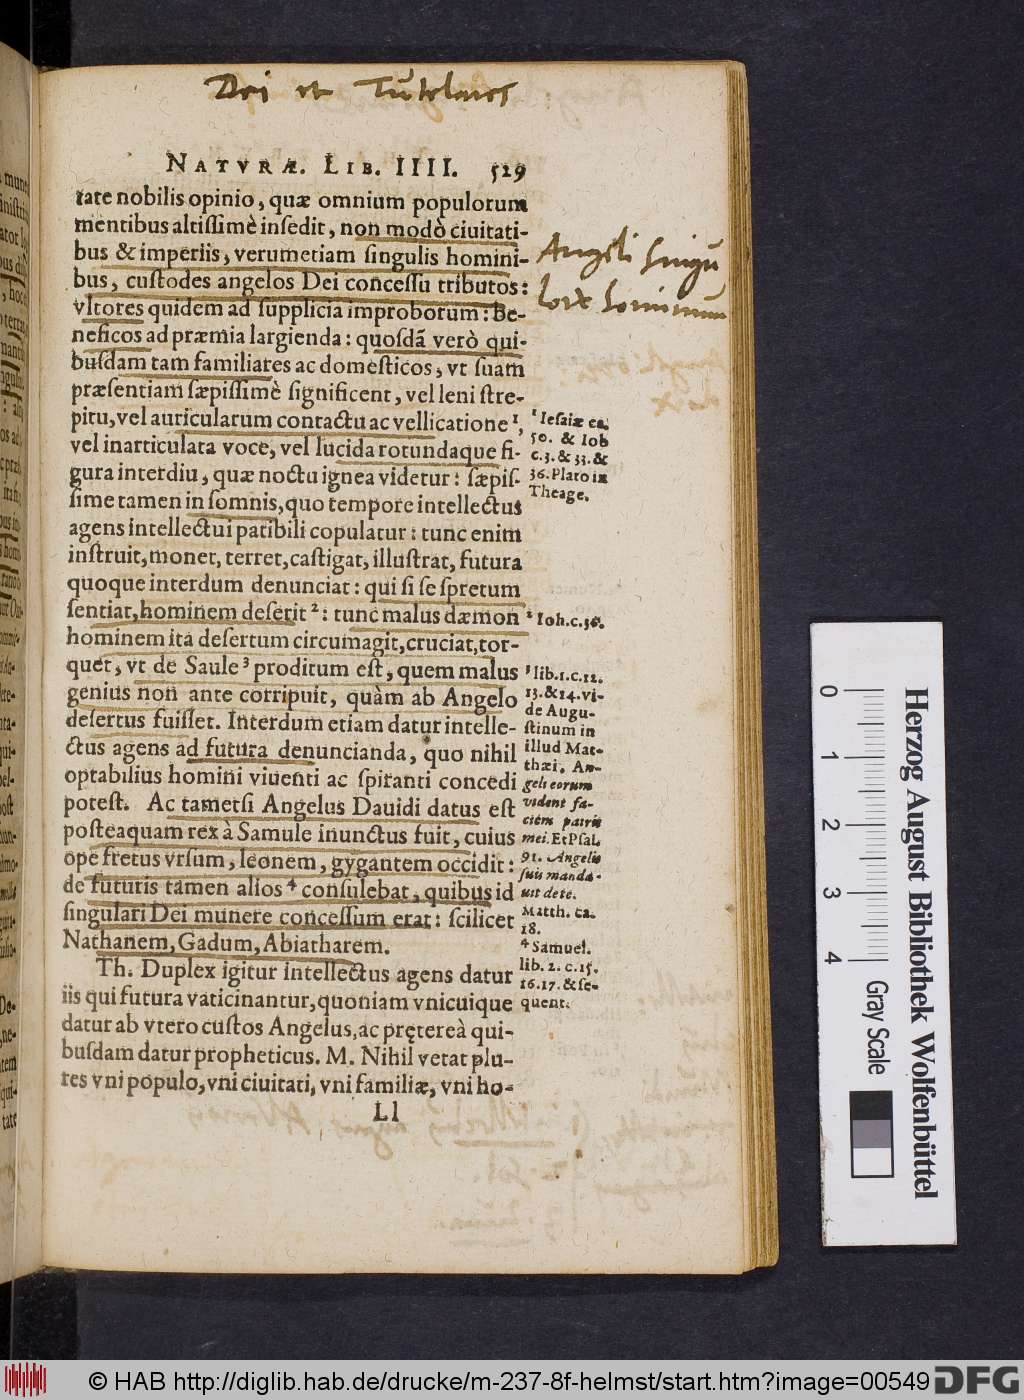 Dei et Tutelares
NATVRÆ. LIB. IIII. 529
tate nobilis opinio, quæ omnium populorum
mentibus altissimè insedit, non modò ciuitati-
bus & imperiis, verumetiam singulis homini-
bus, custodes angelos Dei concessu tributos:
vltores quidem ad supplicia improborum: Be-
neficos ad præmia largienda: quosdã verò qui-
busdam tam familiares ac domesticos, vt suam
præsentiam sæpissimè significent, vel leni stre-
pitu, vel auricularum contactu ac vellicatione ¹,
vel inarticulata voce, vel lucida rotundaque fi-
gura interdiu, quæ noctu ignea videtur: sæpis-
sime tamen in somnis, quo tempore intellectus
agens intellectui patibili copulatur: tunc enim
instruit, monet, terret, castigat, illustrat, futura
quoque interdum denunciat: qui si se spretum
sentiat, hominem deserit ²: tunc malus dæmon
hominem ita desertum circumagit, cruciat, tor-
quet, vt de Saule ³ proditum est, quem malus
genius non ante corripuit, quàm ab Angelo
desertus fuisset. Interdum etiam datur intelle-
ctus agens ad futura denuncianda, quo nihil
optabilius homini viuenti ac spiranti concedi
potest. Ac tametsi Angelus Dauidi datus est
posteaquam rex à Samule inunctus fuit, cuius
ope fretus vrsum, leonem, gygantem occidit:
de futuris tamen alios ⁴ consulebat, quibus id
singulari Dei munere concessum erat: scilicet
Nathanem, Gadum, Abiatharem.
Th. Duplex igitur intellectus agens datur
iis qui futura vaticinantur, quoniam vnicuique
datur ab vtero custos Angelus, ac prętereà qui-
busdam datur propheticus. M. Nihil vetat plu-
res vni populo, vni ciuitati, vni familiæ, vni ho-
Ll
Angeli singu
hominum
¹ Iesaiæ ca.
50. & Iob
c.3. & 33. &
36. Plato in
Theage.
² Ioh.c.36.
³ lib.1.c.12.
13.&14.vi-
de Augu-
stinum in
illud Mat-
thæi. An-
geli eorum
vident fa-
ciem patris
mei. Et Psal.
91. Angelis
suis manda-
uit de te.
Matth. ca.
18.
⁴ Samuel.
lib. 2. c.15.
16.17.& se-
quent.
0 1 2 3 4
Herzog August Bibliothek Wolfenbüttel
Gray Scale
© HAB http://diglib.hab.de/drucke/m-237-8f-helmst/start.htm?image=00549
DFG